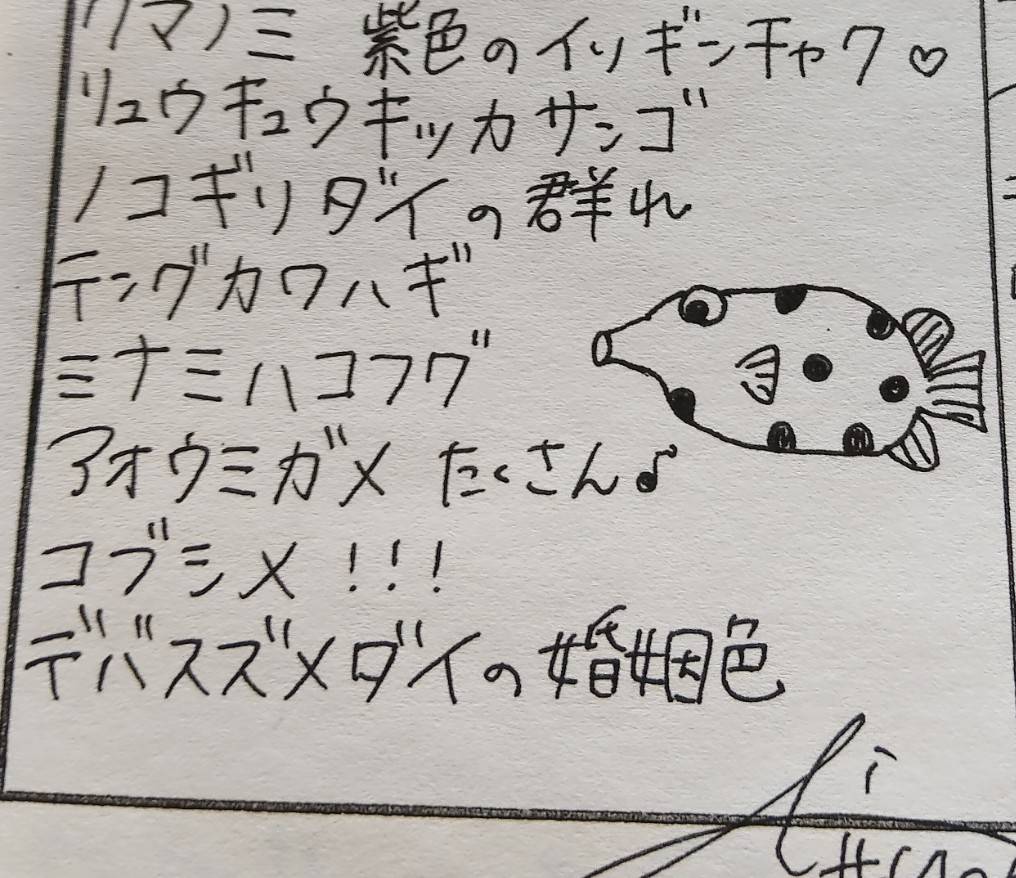 クマノミ 紫色のイソギンチャク♡
リュウキュウキッカサンゴ
ノコギリダイの群れ
テングカワハギ
ミナミハコフグ
アオウミガメ たくさん♪
コブシメ !!!
デバスズメダイの婚姻色